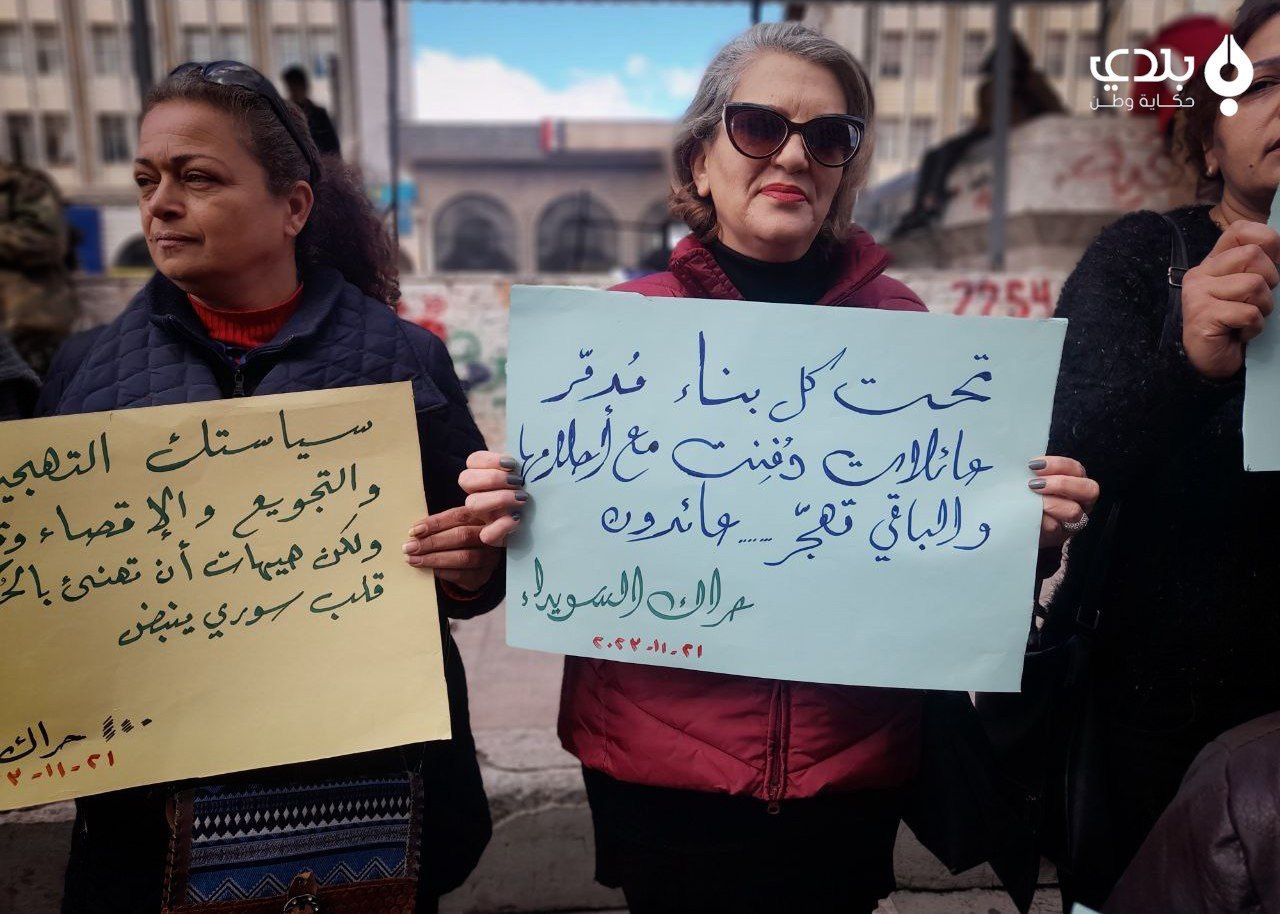 بلدي
حكاية وطن
2254
تحت كل بناء مُدمّر
عائلات دُفِنت مع أحلامها
والباقي تهجّر .... عائدون
حراك السويداء
٢٠٢٣-١١-٢١
سياستك التهجير
والتجويع والإقصاء
ولكن هيهات أن تهنئ
قلب سوري ينبض
حراك
٣-١١-٢١